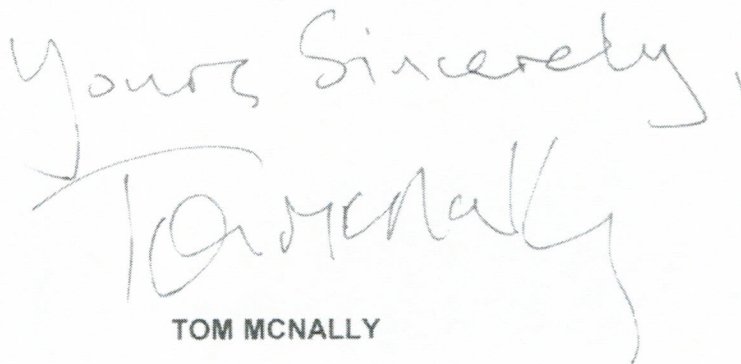 Yours Sincerely,
Tom McNally
TOM MCNALLY